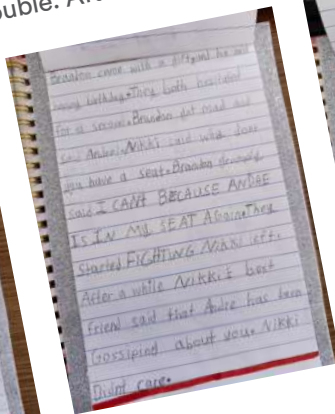 ouble. A
Brandon came with a
birthday. They both
for a second. Brandon got mad and
said Andre. Nikki said why don't
you have a seat. Brandon
said I CANT BECAUSE ANDRE
IS IN MY SEAT AGain. They
Started FIGHTING Nikki left.
After a while Nikki's best
friend said that Andre has been
Gossipind about you. Nikki
Didnt care.